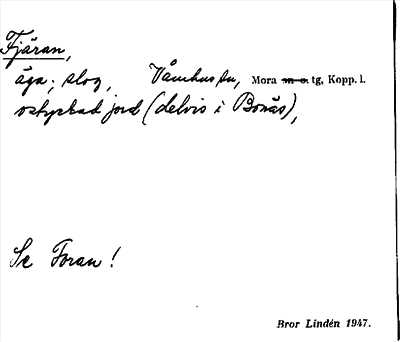 Fjäran,
äga; slog, Våmhus sn, Mora m. o. tg, Kopp. l.
ostyckad jord (delvis i Bonäs),
Se Foran!
Bror Lindén 1947.